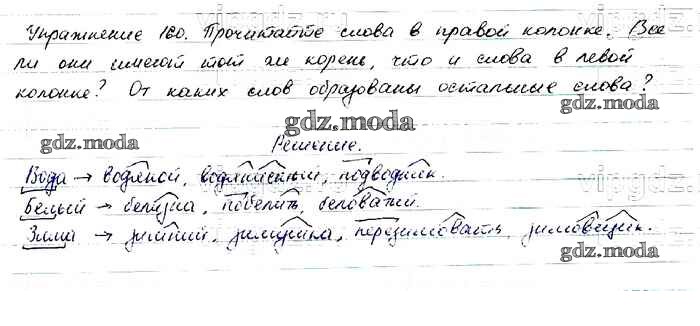 Упражнение 160. Прочитайте слова в правой колонке. Все
ли они имеют тот же корень, что и слова в левой
колонке? От каких слов образованы остальные слова?
gdz.moda
gdz.moda gdz.moda
Решение.
Вода → водяной, водянистый, подводник.
gdz.moda
Белый → белизна, побелить, беловатый.
Зима → зимний, зимушка, перезимовать, зимовщик.
gdz.moda